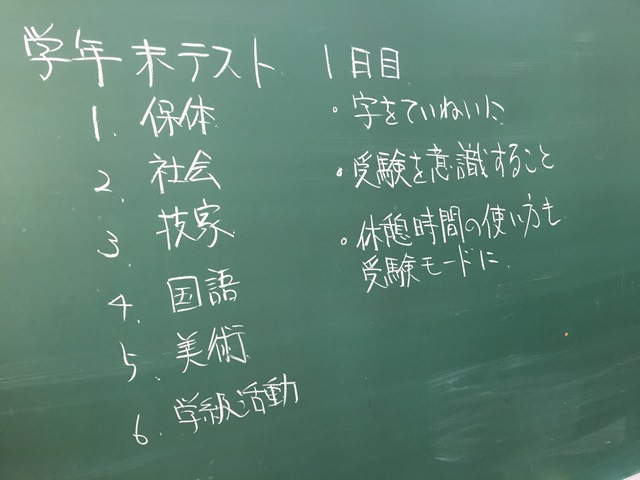 学年末テスト 1日目
1. 保体
2. 社会
3. 技家
4. 国語
5. 美術
6. 学級活動
・字をていねいに
・受験を意識すること
・休憩時間の使い方も
受験モードに